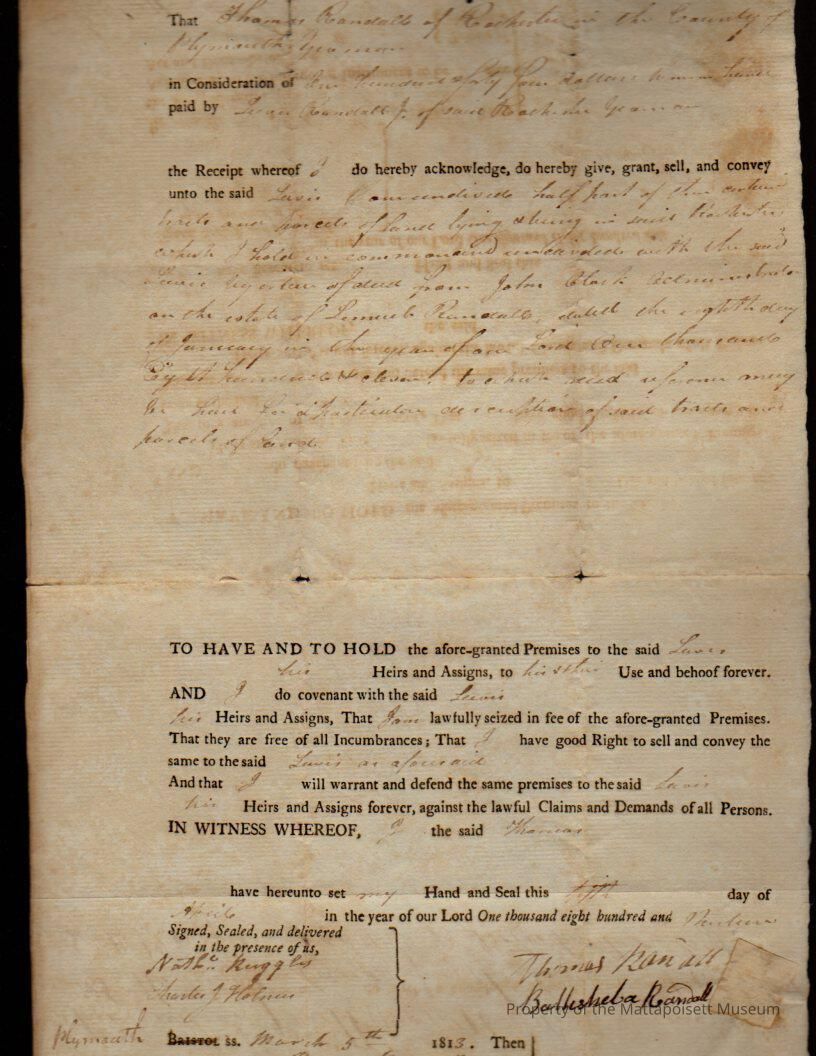 That Thomas Randall of Rochester in the County of
Plymouth Yeoman
in Consideration of One hundred fifty four dollars
paid by Lewis Randall Jr. of said Rochester Yeoman
the Receipt whereof I do hereby acknowledge, do hereby give, grant, sell, and convey
unto the said Lewis One undivided half part of the certain
tracts and parcels of land lying & being in said Rochester
which I hold in common and undivided with the said
Lewis by virtue of deed from John Clark Administrator
on the estate of Lemuel Randall, dated the eighth day
of January in the year of our Lord One thousand
Eight hundred & eleven, to which deed reference may
be had for a particular description of said tracts and
parcels of land.
TO HAVE AND TO HOLD the afore-granted Premises to the said Lewis
his Heirs and Assigns, to his & their Use and behoof forever.
AND I do covenant with the said Lewis
his Heirs and Assigns, That I am lawfully seized in fee of the afore-granted Premises.
That they are free of all Incumbrances; That I have good Right to sell and convey the
same to the said Lewis as aforesaid
And that I will warrant and defend the same premises to the said Lewis
his Heirs and Assigns forever, against the lawful Claims and Demands of all Persons.
IN WITNESS WHEREOF, I the said Thomas
have hereunto set my Hand and Seal this day of
in the year of our Lord One thousand eight hundred and
Signed, Sealed, and delivered
in the presence of us,
Nathl. Ruggles
Charles J. Holmes
Thomas Randall
Bathsheba Randall
Property of the Mattapoisett Museum
Plymouth Bristol ss. March 5th 1813. Then